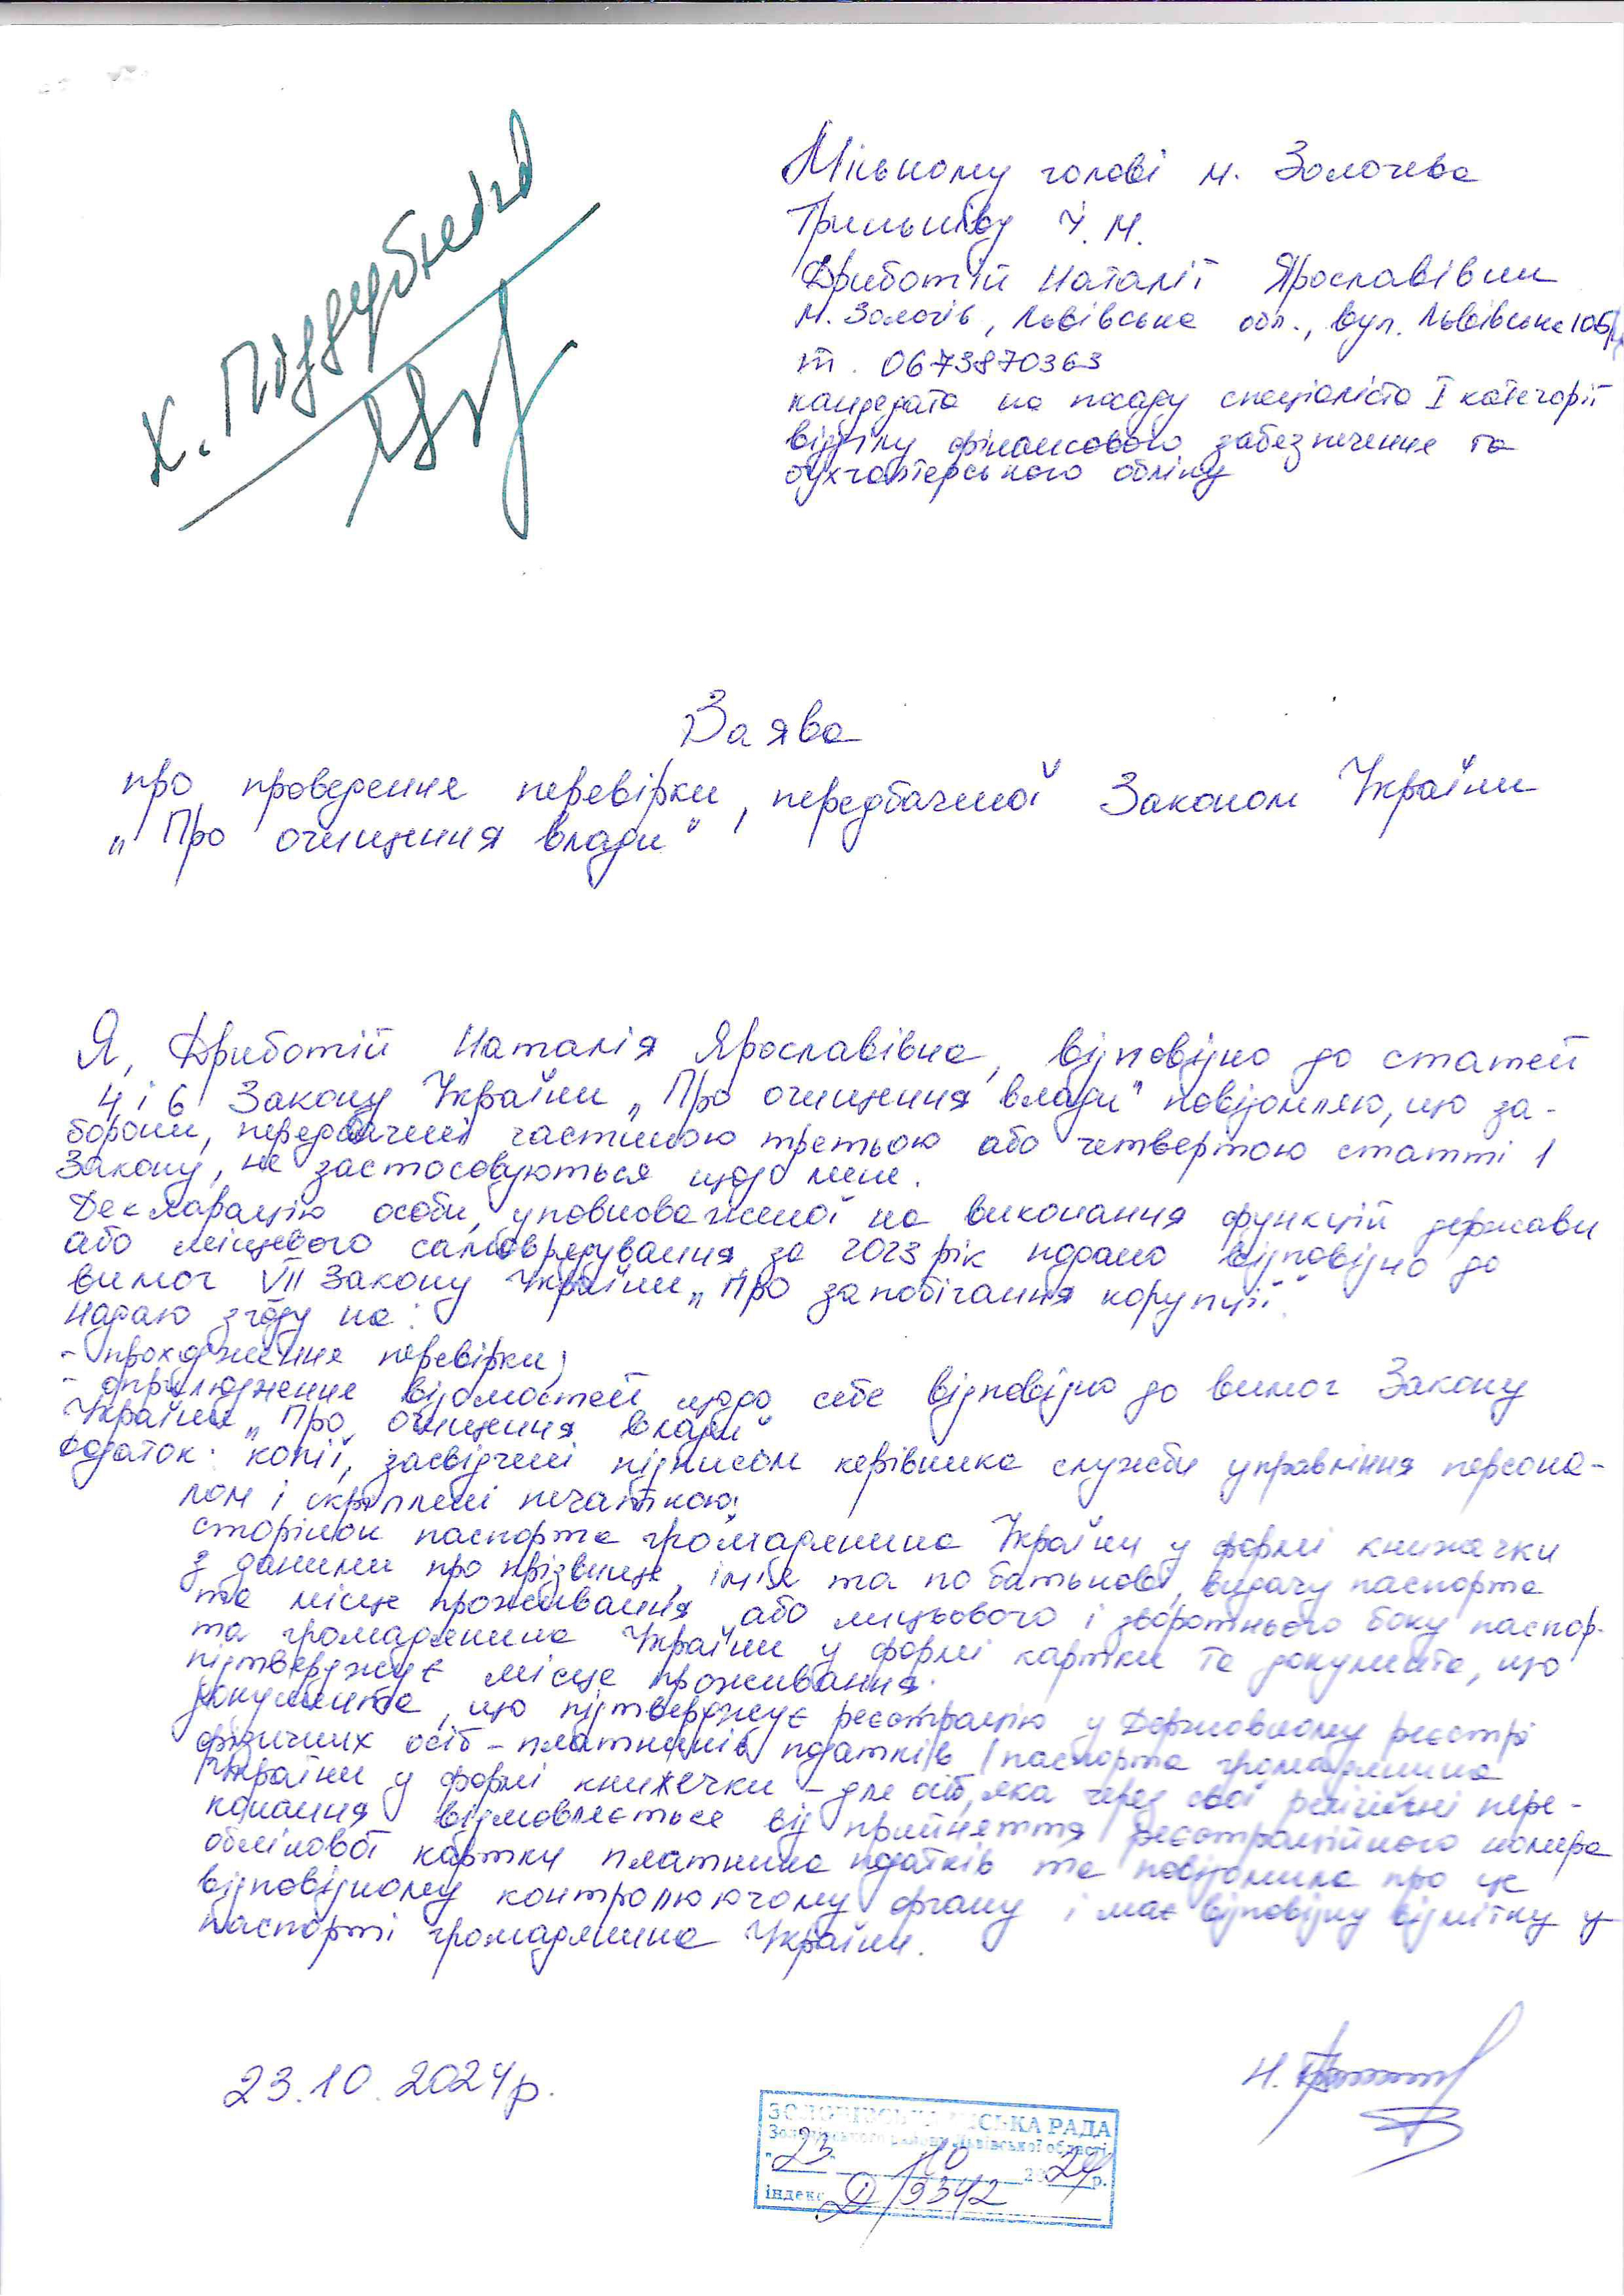 Х. Піддубченко
Міському голові м. Золочева
Гриньківу І. М.
Дриботій Наталії Ярославівни
м. Золочів, Львівська обл., вул. Львівська 105
т. 0673870363
кандидата на посаду спеціаліста I категорії
відділу фінансового забезпечення та
бухгалтерського обліку
Заява
про проведення перевірки, передбаченої Законом України
„Про очищення влади"
Я, Дриботій Наталія Ярославівна, відповідно до статей
4 і 6 Закону України „Про очищення влади" повідомляю, що за-
борони, передбачені частиною третьою або четвертою статті 1
Закону, не застосовуються щодо мене.
Декларацію особи, уповноваженої на виконання функцій держави
або місцевого самоврядування за 2023 рік подано відповідно до
вимог VII Закону України „Про запобігання корупції".
Надаю згоду на:
- проходження перевірки;
- оприлюднення відомостей щодо себе відповідно до вимог Закону
України „Про очищення влади"
Додаток: копії, засвідчені підписом керівника служби управління персона-
лом і скріплені печаткою:
сторінок паспорта громадянина України у формі книжечки
з даними про прізвище, ім'я та по батькові, видачу паспорта
та місце проживання або лицьового і зворотнього боку паспор-
та громадянина України у формі картки та документа, що
підтверджує місце проживання.
документа, що підтверджує реєстрацію у Державному реєстрі
фізичних осіб – платників податків (паспорта громадянина
України у формі книжечки – для осіб, яка через свої релігійні пере-
конання відмовляється від прийняття реєстраційного номера
облікової картки платника податків та повідомила про це
відповідному контролюючому органу і має відповідну відмітку у
паспорті громадянина України.
23.10.2024р.
Н.
ЗОЛОЧІВСЬКА МІСЬКА РАДА
Золочівського району Львівської області
"23" 10 2024р.
індекс Д/9342